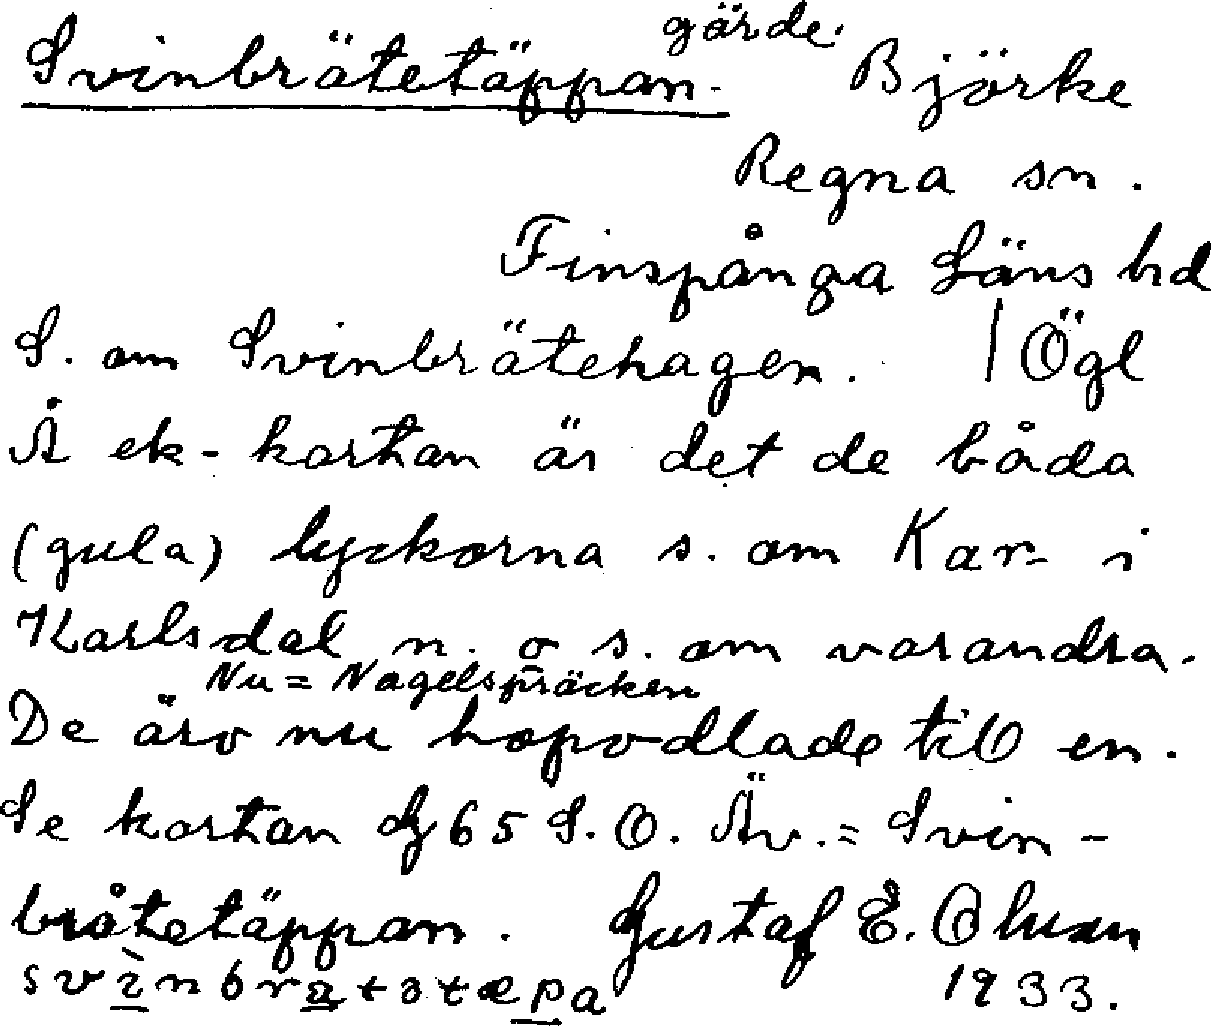 Svinbrätetäppan. gärde. Björke
Regna sn.
Finspånga Läns hd
S. om Svinbrätehagen. | Ögl
Å ek-kartan är det de båda
(gula) lyckorna s. om Kar- i
Karlsdal n. o s. om varandra.
Nu = Nagelspräcken
De äro nu hopodlade till en.
Se kartan G 65 S. O. Äv. = Svin-
bråtetäppan. Gustaf E. Olsson
1933.